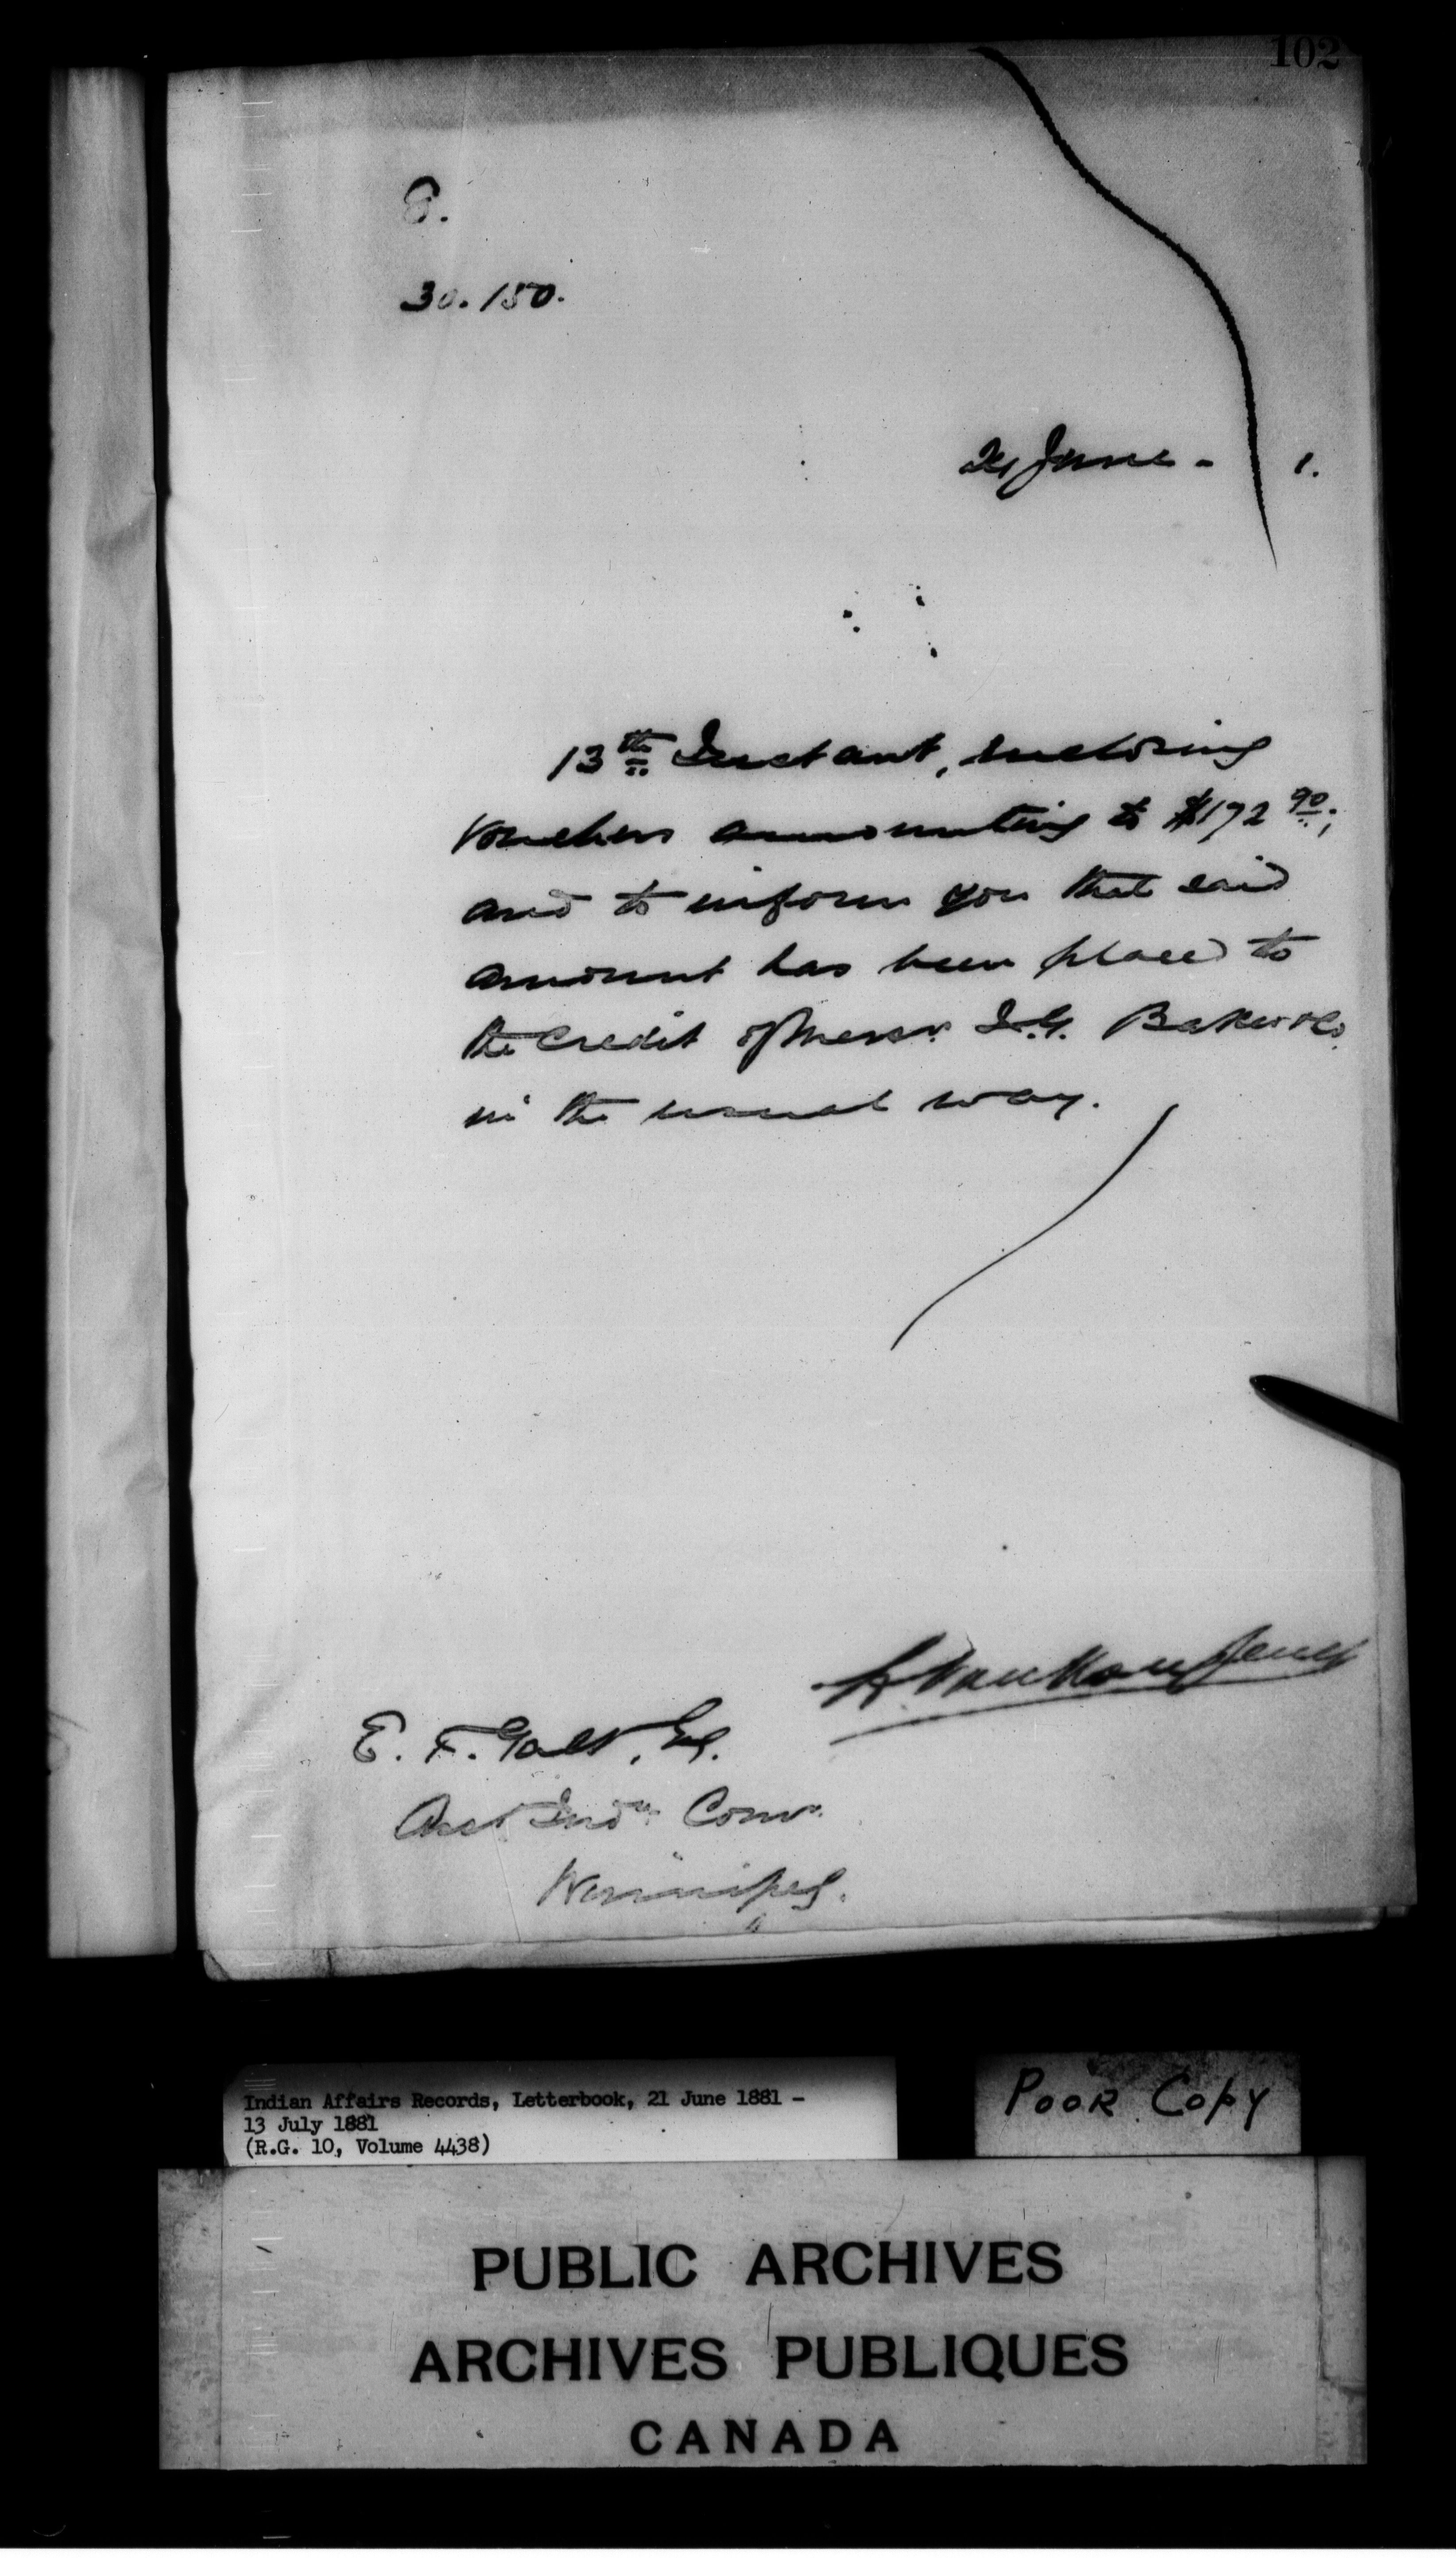 102
8.
30.150.
24 June - 1.
13th Instant, inclosing
Vouchers amounting to $172 90;
and to inform you that said
amount has been placed to
the credit of Messrs. I.G. Baker & Co.
in the usual way.
L. Vankoughnet
E. T. Galt, Esq.
Asst Indn Comr.
Winnipeg.
Indian Affairs Records, Letterbook, 21 June 1881 -
13 July 1881
(R.G. 10, Volume 4438)
POOR COPY
PUBLIC ARCHIVES
ARCHIVES PUBLIQUES
CANADA